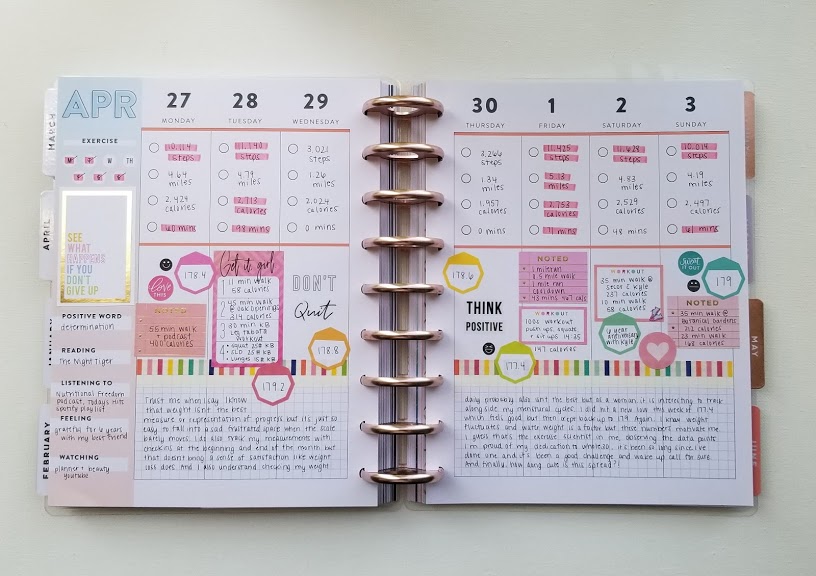 APR
27
MONDAY
28
TUESDAY
29
WEDNESDAY
30
THURSDAY
1
FRIDAY
2
SATURDAY
3
SUNDAY
MARCH
APRIL
JANUARY
FEBRUARY
MAY
JUNE
EXERCISE
M T W W TH
F S S
SEE
WHAT
HAPPENS
IF YOU
DON'T
GIVE UP.
POSITIVE WORD
determination
READING
The Night Tiger
LISTENING TO
Nutritional Freedom
podcast, Today's Hits
Spotify playlist
FEELING
grateful for 6 years
with my best friend
WATCHING
planner + beauty
youtube
steps
4.64
miles
2,429
calories
60 mins
11,140
steps
4.79
miles
2,713
calories
98 mins
3,021
steps
1.26
miles
2,024
calories
0 mins
3,266
steps
1.34
miles
1,957
calories
0 mins
11,425
steps
5.13
miles
2,753
calories
71 mins
11,628
steps
4.83
miles
2,529
calories
48 mins
10,014
steps
4.19
miles
2,497
calories
61 mins
love
THIS
178.4
NOTED
55 min walk
+ podcast
480 calories
Get it girl
11 min walk
58 calories
45 min walk
@ oak openings
314 calories
30 min KB
Leg Tabata
Workout
• squat 25# KB
• SLD 25# KB
• Lunges 18# KB
179.2
DON'T
Quit
178.8
178.6
THINK
POSITIVE
NOTED
1 mile run
0.5 mile walk
1 mile run
cooldown
43 mins 467 cals
WORKOUT
100s workout
push ups, squats
+ sit ups 14:35
147 calories
177.4
WORKOUT
35 min walk @
Secor & Kyle
237 calories
10 min walk
58 calories
6 year
anniversary
with Kyle
sweat
it out
179
NOTED
35 min walk @
Botanical Gardens
212 calories
23 min walk
168 calories
Trust me when I say I know
that weight isn't the best
measure or representation of progress but it's just so
easy to fall into a sad frustrated space when the scale
barely moves. I do also track my measurements with
checking at the beginning and end of the month but
that doesn't bring a sense of satisfaction like weight
loss does. And I also understand checking my weight
daily probably also isn't the best but as a woman it is interesting to track
alongside my menstrual cycles. I did hit a new low this week of 177.4
which feels good but then crept back up to 179. Again, I know weight
fluctuates and water weight is a factor but those numbers motivate me.
I guess that's the exercise scientist in me, observing the data points
I'm proud of my dedication to whole30, it's been so long since I've
done one and it's been a good challenge and wake up call for sure.
And finally, how dang cute is this spread?!